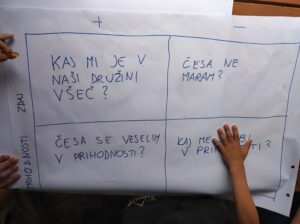 +
−
KAJ MI JE V
NAŠI DRUŽINI
VŠEČ?
ČESA NE
MARAM?
ZDAJ
ČESA SE VESELIM
V PRIHODNOSTI?
KAJ ME
V
PRIHODNOSTI